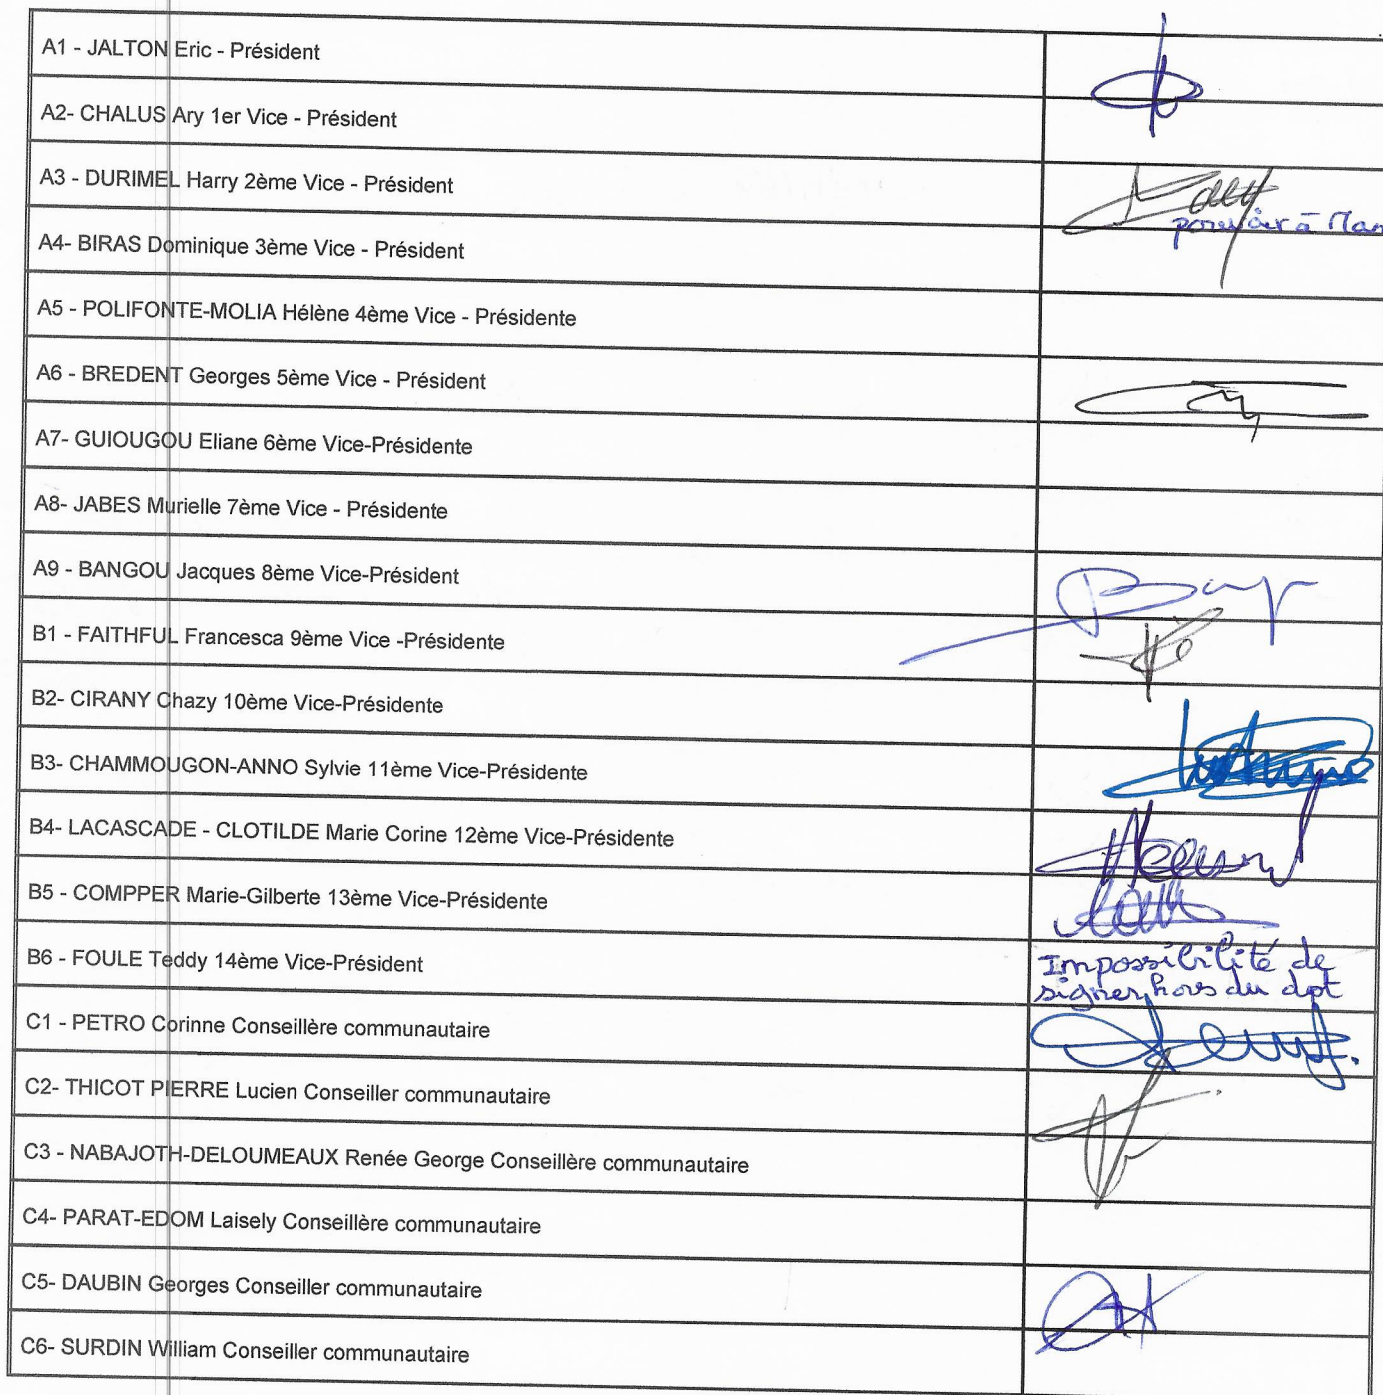 A1 - JALTON Eric - Président
A2- CHALUS Ary 1er Vice - Président
A3 - DURIMEL Harry 2ème Vice - Président
pouvoir à
A4- BIRAS Dominique 3ème Vice - Président
A5 - POLIFONTE-MOLIA Hélène 4ème Vice - Présidente
A6 - BREDENT Georges 5ème Vice - Président
A7- GUIOUGOU Eliane 6ème Vice-Présidente
A8- JABES Murielle 7ème Vice - Présidente
A9 - BANGOU Jacques 8ème Vice-Président
B1 - FAITHFUL Francesca 9ème Vice -Présidente
B2- CIRANY Chazy 10ème Vice-Présidente
B3- CHAMMOUGON-ANNO Sylvie 11ème Vice-Présidente
B4- LACASCADE - CLOTILDE Marie Corine 12ème Vice-Présidente
B5 - COMPPER Marie-Gilberte 13ème Vice-Présidente
B6 - FOULE Teddy 14ème Vice-Président
Impossibilité de
signer hors du dpt
C1 - PETRO Corinne Conseillère communautaire
C2- THICOT PIERRE Lucien Conseiller communautaire
C3 - NABAJOTH-DELOUMEAUX Renée George Conseillère communautaire
C4- PARAT-EDOM Laisely Conseillère communautaire
C5- DAUBIN Georges Conseiller communautaire
C6- SURDIN William Conseiller communautaire